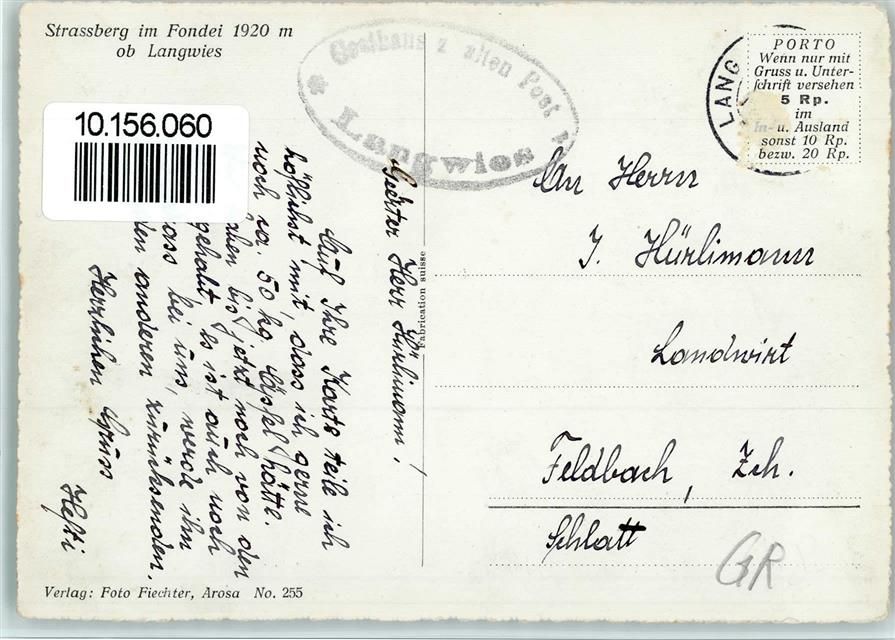 Strassberg im Fondei 1920 m
ob Langwies
10.156.060
Gasthaus z alten Post
Langwies
LANG
PORTO
Wenn nur mit
Gruss u. Unter-
schrift versehen
5 Rp.
im
In- u. Ausland
sonst 10 Rp.
bezw. 20 Rp.
Geerter Herr Hürlimann!
Auf Ihre Karte teile ich
höflichst mit, dass ich gerne
noch ca. 50 kg. Äpfel hätte.
bis jetzt noch von den
gehabt. Es ist auch noch
bei uns, werde ihn
den anderen zurücksenden.
Herzlichen Gruss
Hefti
Fabrication suisse
An Herrn
J. Hürlimann
Landwirt
Feldbach, Zch.
Schlatt
GR
Verlag: Foto Fiechter, Arosa No. 255